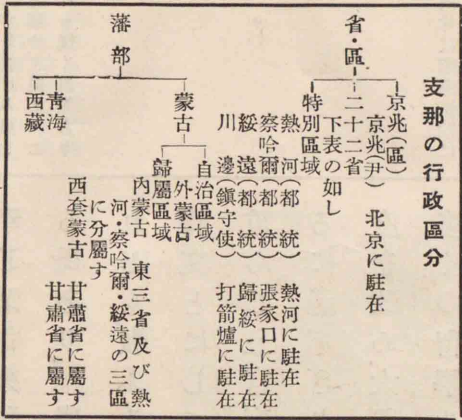 支那の行政區分
省・區
京兆(區)
京兆(尹) 北京に駐在
二十二省
下表の如し
特別區域
熱河(都統) 熱河に駐在
察哈爾(都統) 張家口に駐在
綏遠(都統) 歸綏に駐在
川邊(鎭守使) 打箭爐に駐在
藩部
蒙古
自治區域
外蒙古
歸屬區域
內蒙古 東三省及び熱
河・察哈爾・綏遠の三區
に分屬す
西套蒙古 甘肅省に屬す
青海 甘肅省に屬す
西藏